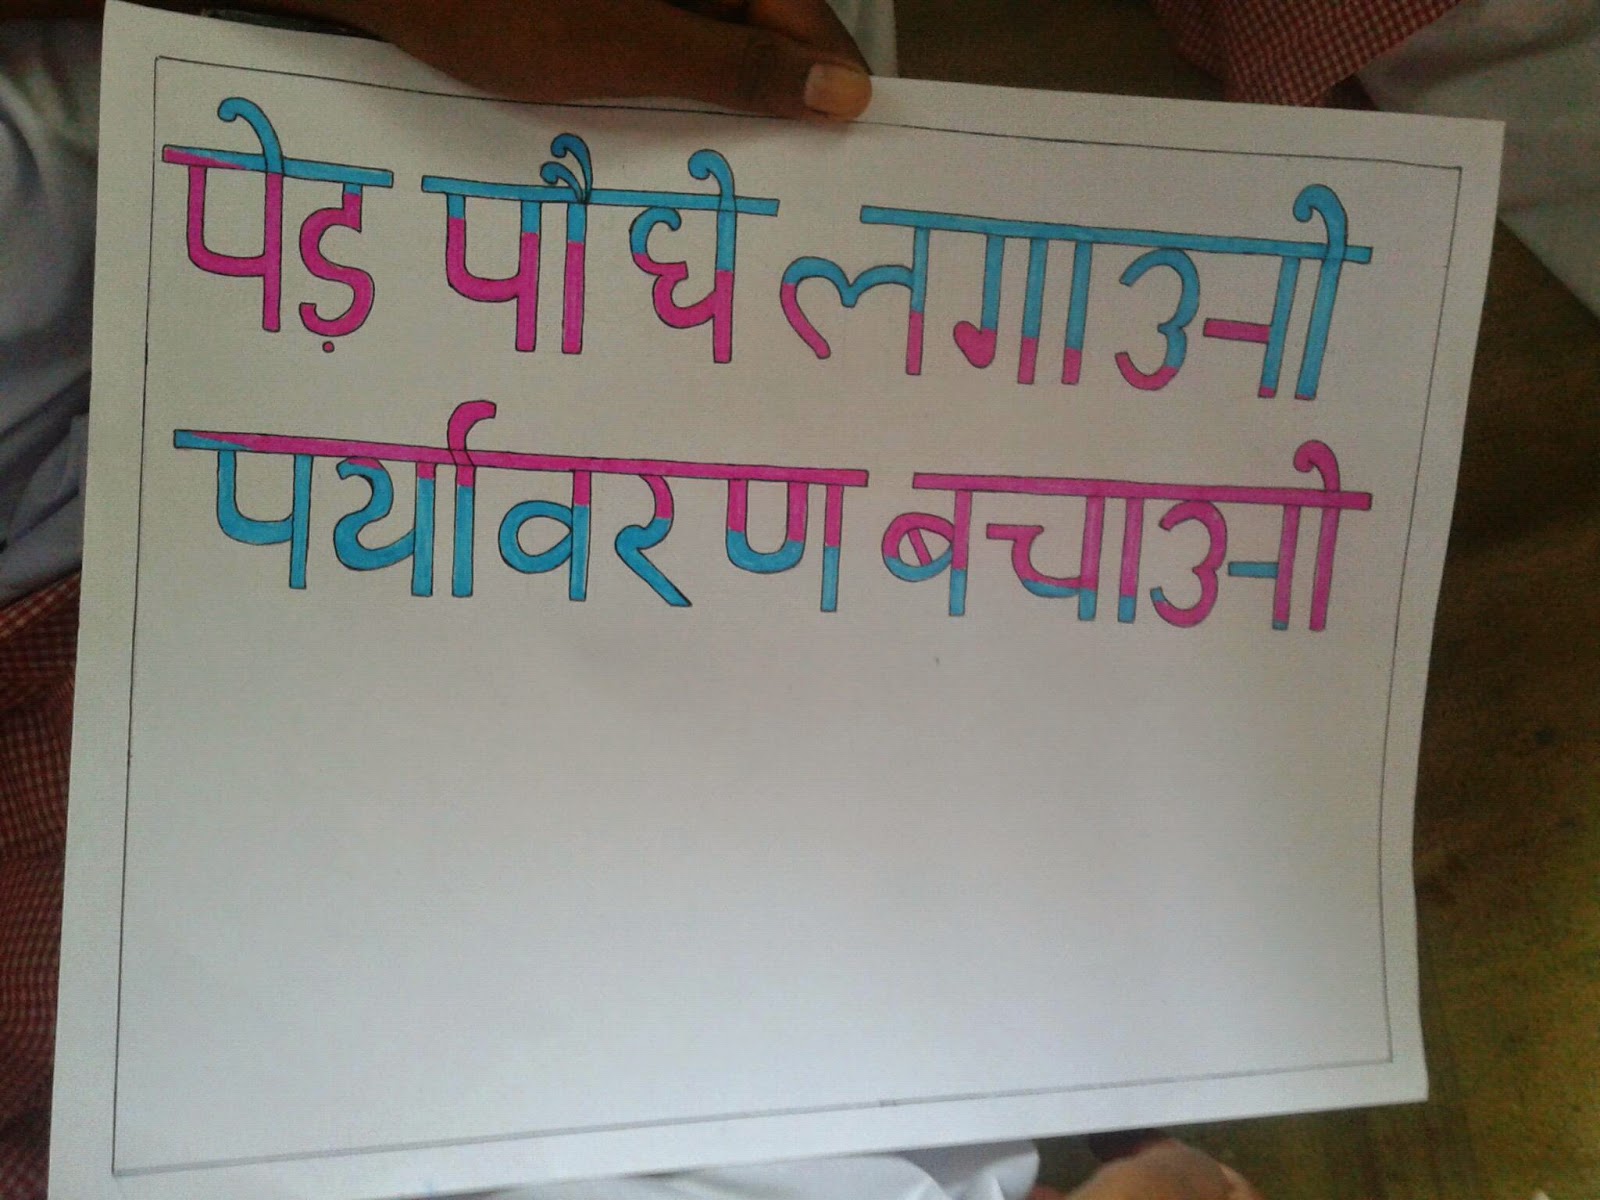 पेड़ पौधे लगाओ
पर्यावरण बचाओ